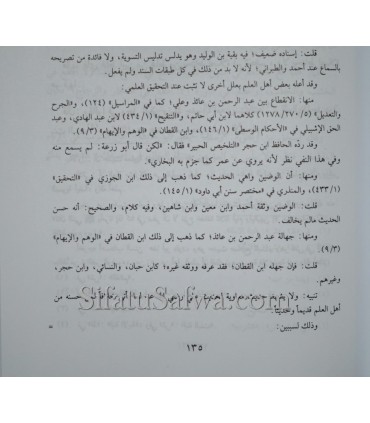 قلت: إسناده ضعيف؛ فيه بقية بن الوليد وهو يدلس تدليس التسوية، ولا فائدة من تصريحه
بالسماع عند أحمد والطبراني؛ لأنه لا بد من ذلك في كل طبقات السند ولم يفعل.
وقد أعله بعض أهل العلم بعلل أخرى لا تثبت عند التحقيق العلمي.
منها: الانقطاع بين عبد الرحمن بن عائذ وعلي؛ كما في «المراسيل» (١٢٤)، و«الجرح
والتعديل» (١٢٧٨/٢٧٠/٥) كلاهما لابن أبي حاتم، و«التنقيح» (٤٣٤/١) لابن عبد الهادي، وعبد
الحق الإشبيلي في «الأحكام الوسطى» (١٤٦/١)، وابن القطان في «الوهم والإيهام» (٩/٣).
وقد رده الحافظ ابن حجر «التلخيص الحبير» فقال: «لكن قال أبو زرعة: لم يسمع منه
وفي هذا النفي نظر لأنه يروي عن عمر كما جزم به البخاري».
ومنها: أن الوضين واهي الحديث؛ كما ذهب إلى ذلك ابن الجوزي في «التحقيق»
(٤٣٣/١)، والمنذري في «مختصر سنن أبي داود» (١٤٥/١).
قلت: الوضين وثقة أحمد وابن معين وابن شاهين، وفيه كلام، والصحيح: أنه حسن
الحديث مالم يخالف.
ومنها: جهالة عبد الرحمن بن عائذ؛ كما ذهب إلى ذلك ابن القطان في «الوهم والإيهام»
(٩/٣).
قلت: فإن جهله ابن القطان؛ فقد عرفه ووثقه غيره؛ كابن حبان، والنسائي، وابن حجر،
وغيرهم.
تنبيه: ولا حسنه من
أهل العلم قديماً وحديثاً.
وذلك لسببين: =
SifatuSafwa.com
١٣٥